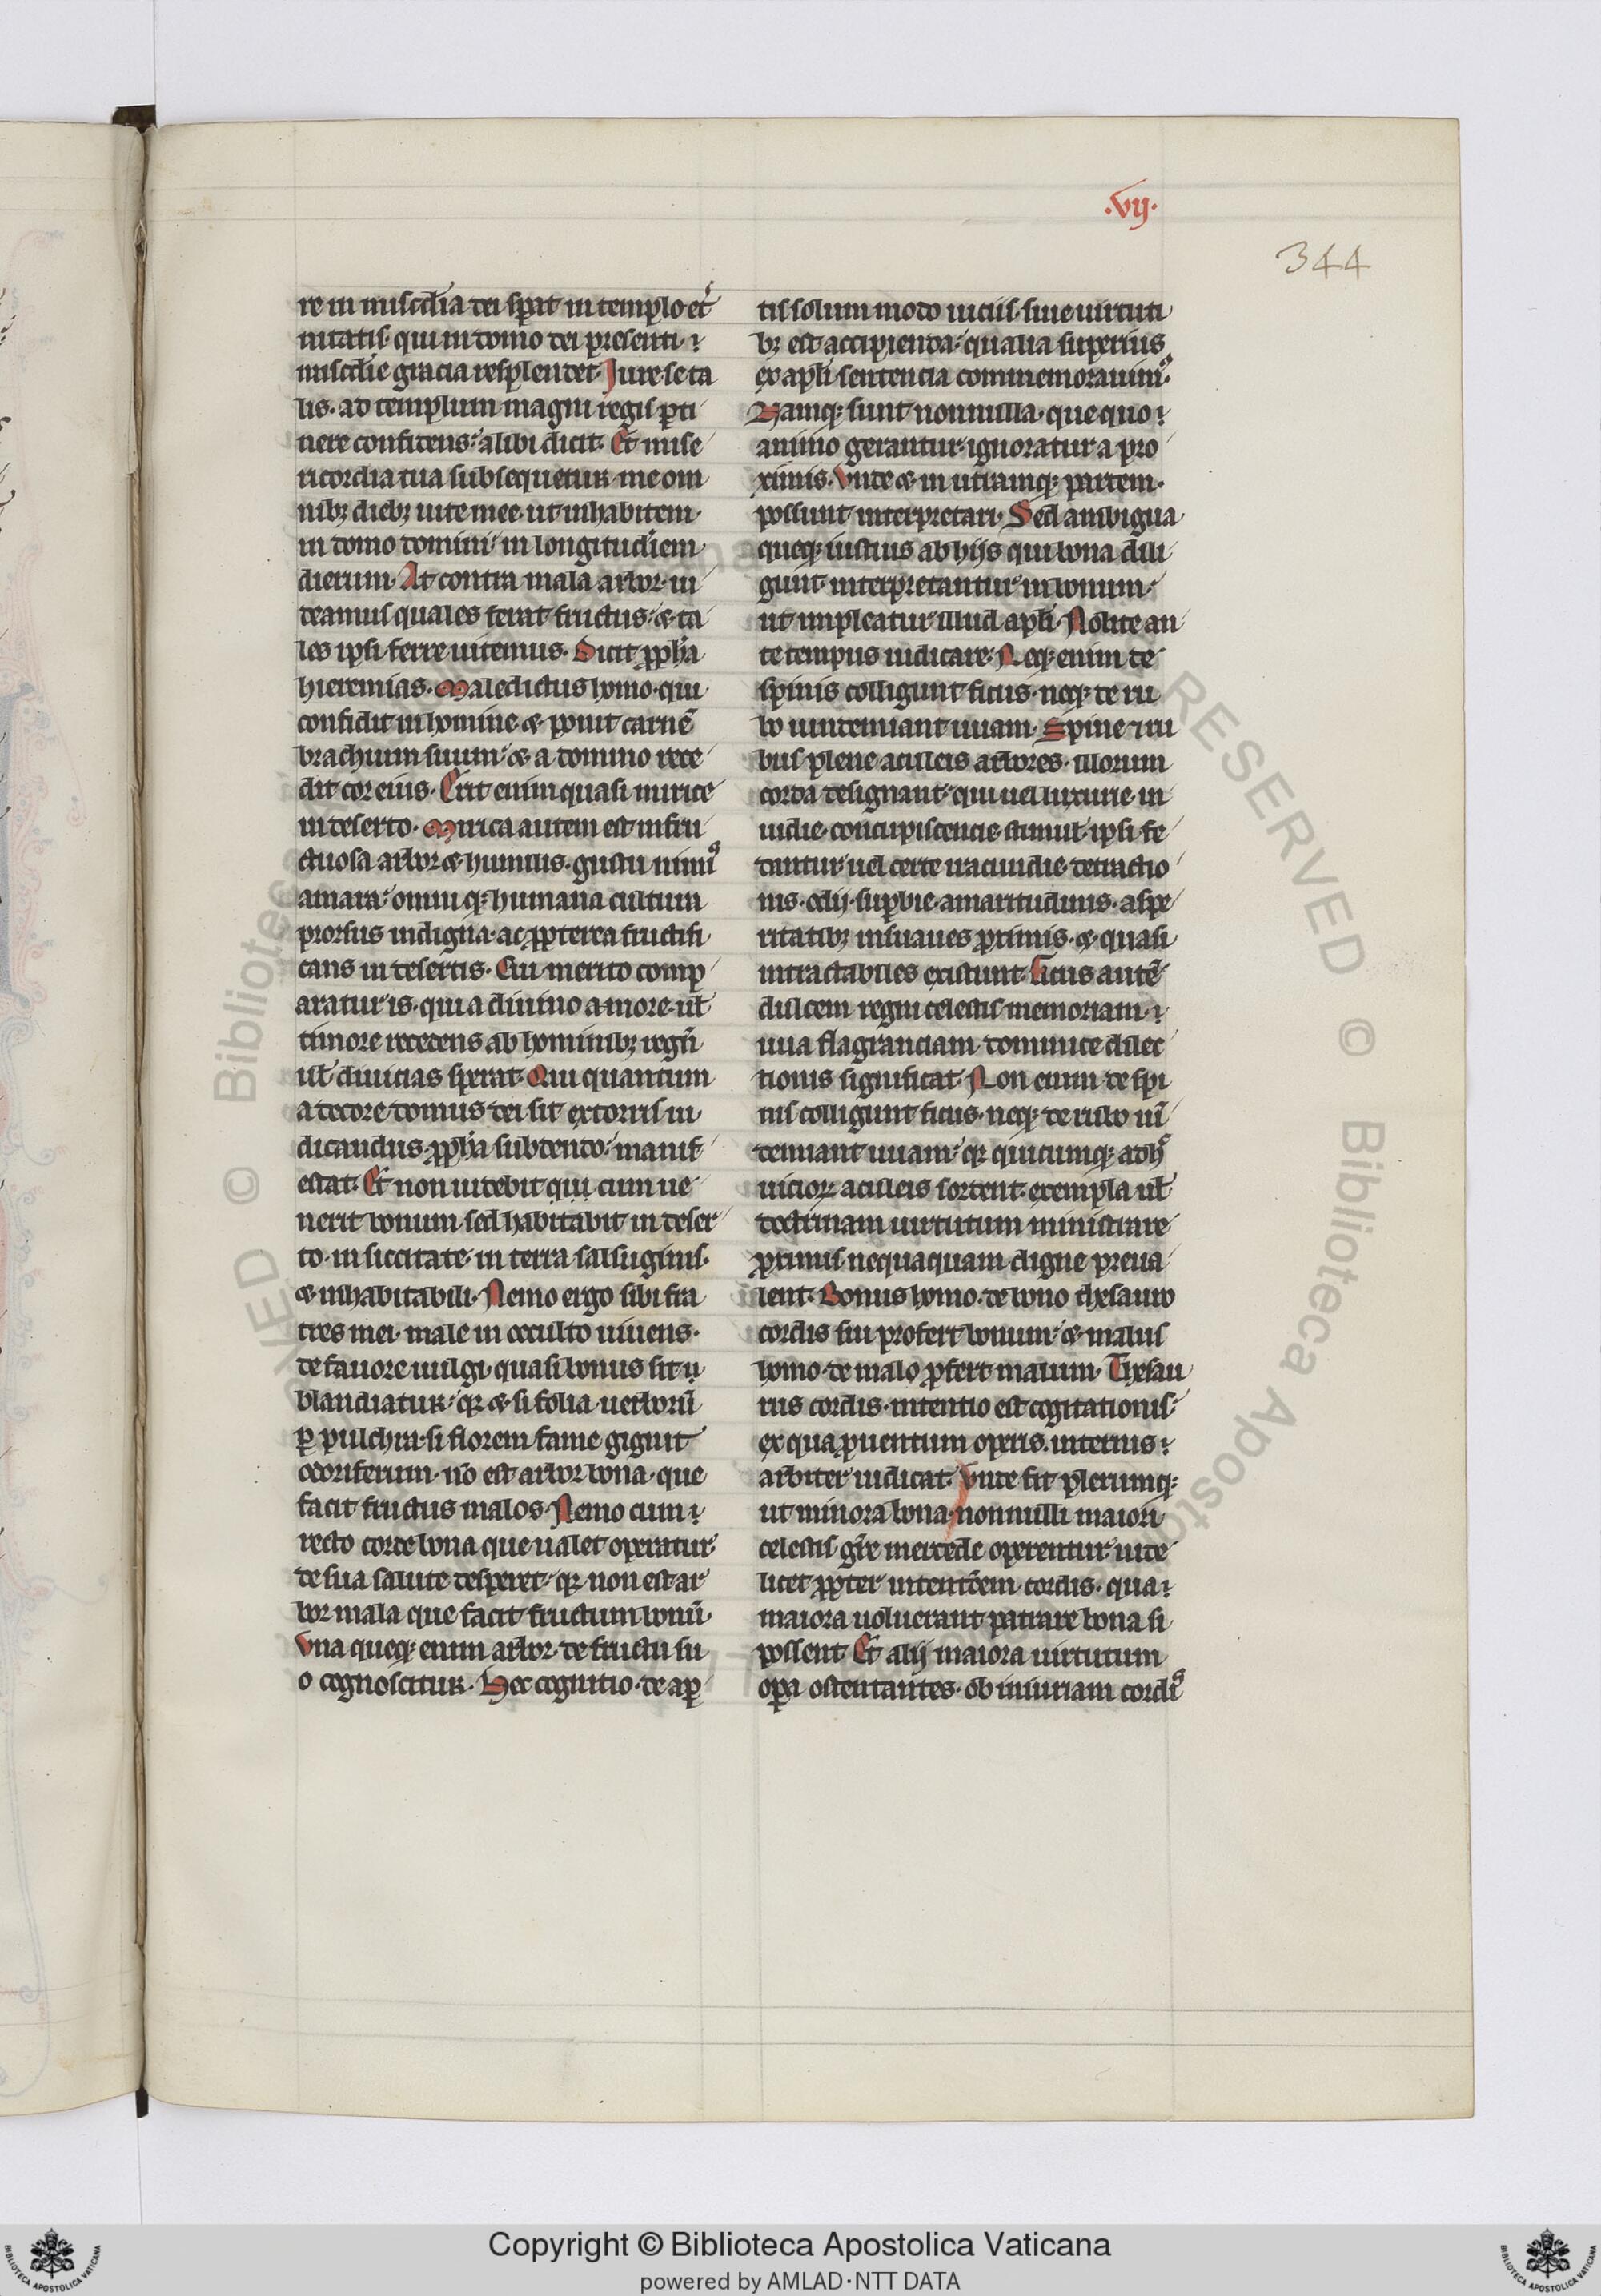 .vij.
344
re in mis̄cdia dei sperat in templo et̾
nitatis. qui in domo dei presenti.
mis̄cdie gracia resplendet. Jure se ta
lis. ad templum magni regis ꝑti
nere confitens. alibi dicit. Et mise
ricordia tua subsequetur me om
nibꝫ diebꝫ uite mee. ut inhabitem.
in domo domini in longitudiem
dierum. At contra mala arbor. ui
deamus quales ferat fructus. & ta
les ipsi ferre uitemus. Dicit ꝓpħa
hieremias. Maledictus homo. qui
confidit in homine & ponit carnē
brachium suum. & a domino rece
dit cor eius. Erit enim quasi mirice
in deserto. Mirica autem est infru
ctuosa arbor & humilis. gustu nimiꝰ
amara. omni qꝫ humana cultura
prorsus indigna. ac ꝓpterea fructifi
cans in desertis. Cui merito comp
aratur is. qui a diuino amore. ut̄
timore recedens ab hominibꝫ regn̄
ut̄ diuicias sperat. Qui quantum
a decore domus dei sit extorris iu
dicandus. ꝓpħa subdendo. manif
estat. Et non uidebit qui cum ue
nerit bonum. sed habitabit in deser
to. in siccitate. in terra salsuginis.
& inhabitabili. Nemo ergo sibi fra
tres mei. male in occulto uiuens.
de fauore uulgi. quasi bonus sit
blandiatur. qꝛ & si folia uerborū
ꝑ pulchra. si florem fame gignit
odoriferum. nō est arbor bona. que
facit fructus malos. Nemo cum
recto corde bona que ualet operatur
de sua salute desperet. qꝛ non est ar
bor mala que facit fructum bonū.
Vna queqꝫ enim arbor. de fructu su
o cognoscitur. Hec cognitio. de aꝑ
tis solum modo uiciis. siue uirtuti
bꝫ est accipienda. qualia superius
ex apl̄i sentencia commemorauimꝰ.
Namqꝫ sunt nonnulla. que quo
animo gerantur. ignoratur a pro
ximis. Vnde & in utramqꝫ partem.
possunt interpretari. Sed ambigua
queqꝫ iustius ab hijs qui bona dili
gunt. interpretantur in bonum.
ut impleatur illud apl̄i. Nolite an
te tempus iudicare. Neqꝫ enim de
spinis colligunt ficus. neqꝫ de ru
bo uindemiant uuam. Spine ⁊ ru
bus plene aculeis arbores. illorum
corda designant. qui uel luxurie. in
uidie. concupiscencie stimul̄. ipsi fe
dantur. uel certe iracundie. detractio
nis. odij. suꝑbie. amaritudinis. aspe
ritatibꝫ insuaues ꝓximis. & quasi
intractabiles existunt. Ficus autē
dulcem regni celestis memoriam.
uua flagranciam dominice dilec
tionis significat. Non enim de spi
nis colligunt ficus. neqꝫ de rubo uī
demiant uuam. qꝛ quicumqꝫ adħꝰ
uicioꝝ aculeis sordent. exempla ut̄
doctrinam uirtutum ministrare
ꝓximis. nequaquam digne preua
lent. Bonus homo. de bono thesauro
cordis sui profert bonum. & malus
homo. de malo ꝓfert malum. Thesau
rus cordis. intentio est cogitationis.
ex qua ꝓuentum operis. internus
arbiter iudicat. Vnde fit plerumqꝫ
ut minora bona. nonnulli maiori
celestis gr̄e mercede operentur. uide
licet ꝓpter intentōem. cordis. qua
maiora uoluerant patrare bona si
possent. Et alij maiora uirtutum
oꝑa ostentantes. ob iniuriam cordiꝰ
Copyright © Biblioteca Apostolica Vaticana
powered by AMLAD·NTT DATA